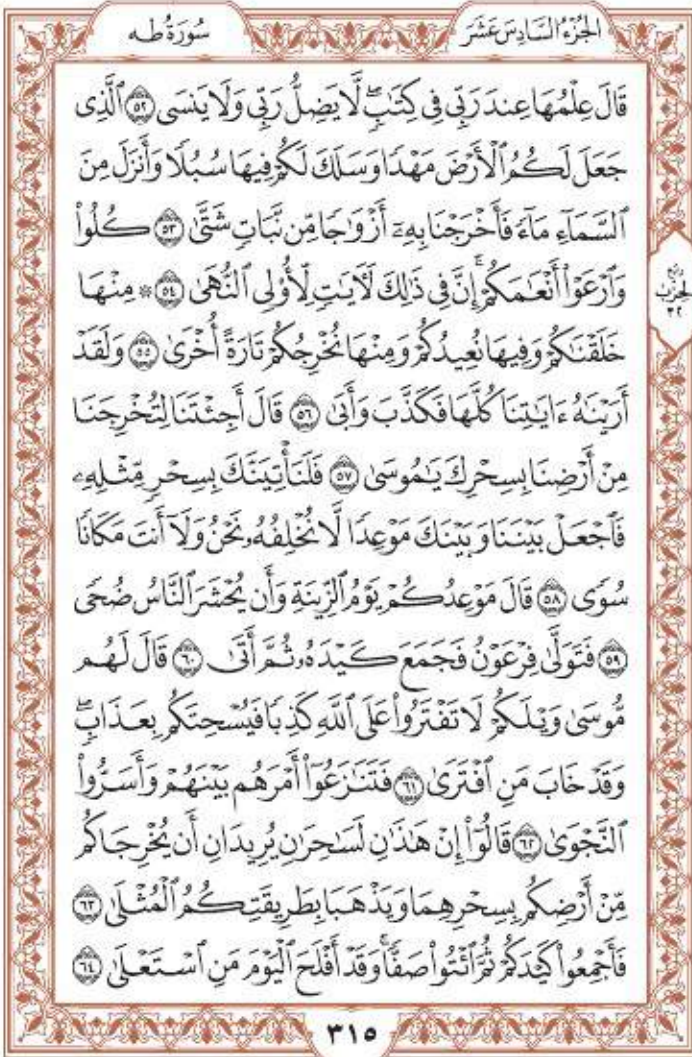 الجُزْءُ السَّادِسَ عَشَرَ
سُورَةُ طه
قَالَ عِلْمُهَا عِندَ رَبِّي فِي كِتَٰبٍۖ لَّا يَضِلُّ رَبِّي وَلَا يَنسَى ٥٢ ٱلَّذِي
جَعَلَ لَكُمُ ٱلْأَرْضَ مَهْدًا وَسَلَكَ لَكُمْ فِيهَا سُبُلًا وَأَنزَلَ مِنَ
ٱلسَّمَآءِ مَآءً فَأَخْرَجْنَا بِهِۦٓ أَزْوَٰجًا مِّن نَّبَاتٍ شَتَّىٰ ٥٣ كُلُوا۟
وَٱرْعَوْا۟ أَنْعَٰمَكُمْۗ إِنَّ فِي ذَٰلِكَ لَءَايَٰتٍ لِّأُو۟لِي ٱلنُّهَىٰ ٥٤ ۞ مِنْهَا
رُبْع
الحِزْب
٣٢
خَلَقْنَٰكُمْ وَفِيهَا نُعِيدُكُمْ وَمِنْهَا نُخْرِجُكُمْ تَارَةً أُخْرَىٰ ٥٥ وَلَقَدْ
أَرَيْنَٰهُ ءَايَٰتِنَا كُلَّهَا فَكَذَّبَ وَأَبَىٰ ٥٦ قَالَ أَجِئْتَنَا لِتُخْرِجَنَا
مِنْ أَرْضِنَا بِسِحْرِكَ يَٰمُوسَىٰ ٥٧ فَلَنَأْتِيَنَّكَ بِسِحْرٍ مِّثْلِهِۦ
فَٱجْعَلْ بَيْنَنَا وَبَيْنَكَ مَوْعِدًا لَّا نُخْلِفُهُۥ نَحْنُ وَلَآ أَنتَ مَكَانًا
سُوًى ٥٨ قَالَ مَوْعِدُكُمْ يَوْمُ ٱلزِّينَةِ وَأَن يُحْشَرَ ٱلنَّاسُ ضُحًى
٥٩ فَتَوَلَّىٰ فِرْعَوْنُ فَجَمَعَ كَيْدَهُۥ ثُمَّ أَتَىٰ ٦٠ قَالَ لَهُم
مُّوسَىٰ وَيْلَكُمْ لَا تَفْتَرُوا۟ عَلَى ٱللَّهِ كَذِبًا فَيُسْحِتَكُم بِعَذَابٍۖ
وَقَدْ خَابَ مَنِ ٱفْتَرَىٰ ٦١ فَتَنَٰزَعُوٓا۟ أَمْرَهُم بَيْنَهُمْ وَأَسَرُّوا۟
ٱلنَّجْوَىٰ ٦٢ قَالُوٓا۟ إِنْ هَٰذَٰنِ لَسَٰحِرَٰنِ يُرِيدَانِ أَن يُخْرِجَاكُم
مِّنْ أَرْضِكُم بِسِحْرِهِمَا وَيَذْهَبَا بِطَرِيقَتِكُمُ ٱلْمُثْلَىٰ ٦٣
فَأَجْمِعُوا۟ كَيْدَكُمْ ثُمَّ ٱئْتُوا۟ صَفًّاۚ وَقَدْ أَفْلَحَ ٱلْيَوْمَ مَنِ ٱسْتَعْلَىٰ ٦٤
٣١٥